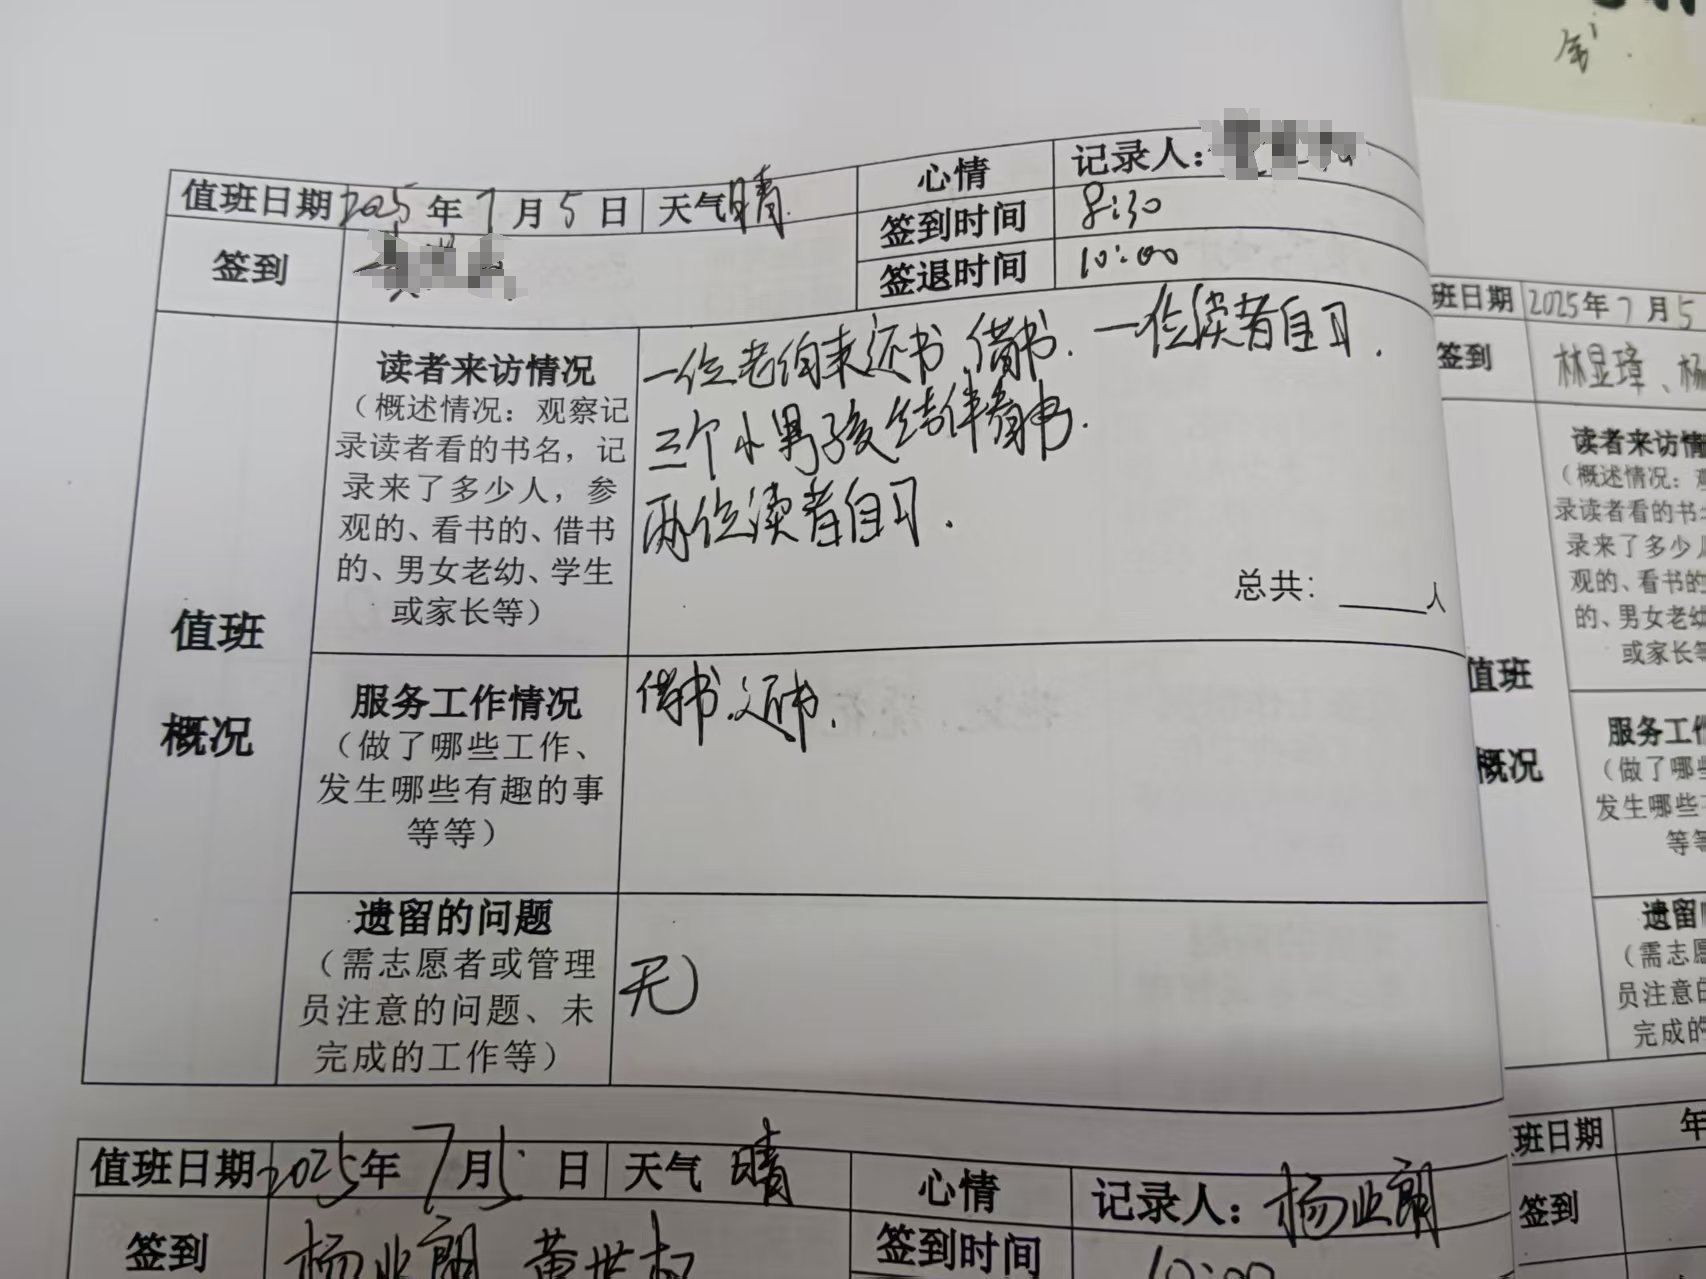 值班日期 2025 年 7 月 5 日 天气 晴. 心情 记录人：
签到 签到时间 8:30
签退时间 10:00
值班
概况
读者来访情况
（概述情况：观察记
录读者看的书名，记
录来了多少人，参
观的、看书的、借书
的、男女老幼、学生
或家长等）
一位老伯来还书、借书. 一位读者自习.
三个小男孩结伴看书.
两位读者自习.
总共：____人
服务工作情况
（做了哪些工作、
发生哪些有趣的事
等等）
借书、还书.
遗留的问题
（需志愿者或管理
员注意的问题、未
完成的工作等）
无
值班日期 2025 年 7 月 5 日 天气 晴 心情 记录人：杨业朗
签到 杨业朗 黄世权 签到时间 10:00
班日期 2025年 7 月 5
签到 林显璋、杨
值班
概况
读者来访情
（概述情况：观
录读者看的书
录来了多少人
观的、看书的
的、男女老幼
或家长等
服务工作
（做了哪些
发生哪些
等等
遗留
（需志愿
员注意的
完成的
班日期 年
签到